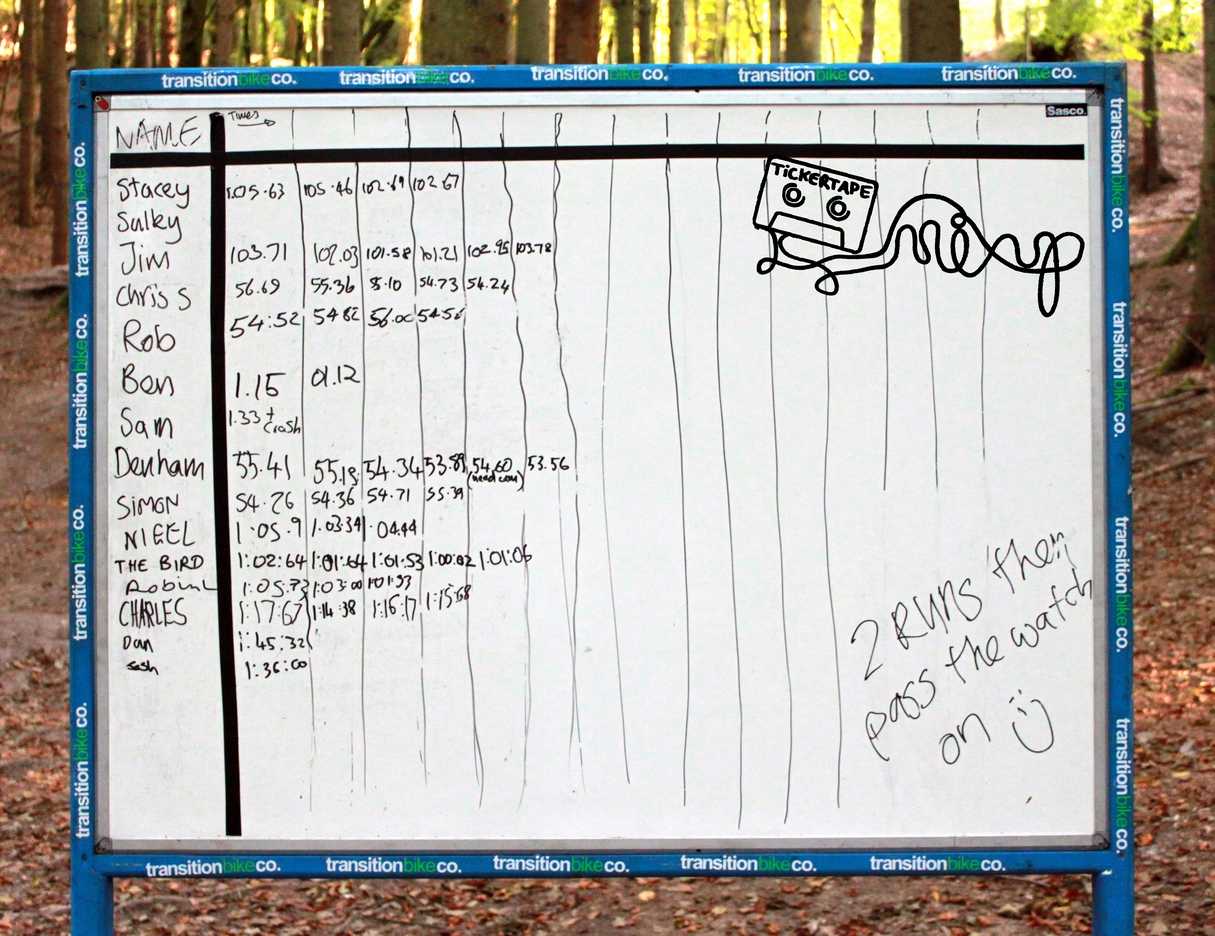 transitionbikeco. transitionbikeco. transitionbikeco. transitionbikeco. transitionbikeco.
Sasco.
NAME Times
TiCKERTAPE
mixup
Stacey 1.05.63 105.46 102.69 102.67
Sulky
Jim 103.71 102.03 101.58 101.21 102.95 103.78
Chris S 56.69 55.36 55.10 54.73 54.24
Rob 54:52 54 82 56.00
Ben 1.15 01.12
Sam 1.33 + crash
Denham 55.41 55.15 54.34 53.89 54.60 (head cam) 53.56
SIMON 54.26 54.36 54.71 55.39
NIEEL 1.05.9 1.03.34 1.04.44
THE BIRD 1:02:64 1:01:64 1:01:53 1:00:02 1:01:06
Robin L 1:05:73 1:03:00 1:01:93
CHARLES 1:17:67 1:14:38 1:16:17 1:15:58
Dan 1:45:32
sash 1:36:00
2 Runs then
pass the watch
on
transitionbikeco. transitionbikeco. transitionbikeco. transitionbikeco. transitionbikeco.
transitionbikeco.
transitionbikeco.
transitionbikeco.
transitionbikeco.
transitionbikeco.
transitionbikeco.
transitionbikeco.
transitionbikeco.